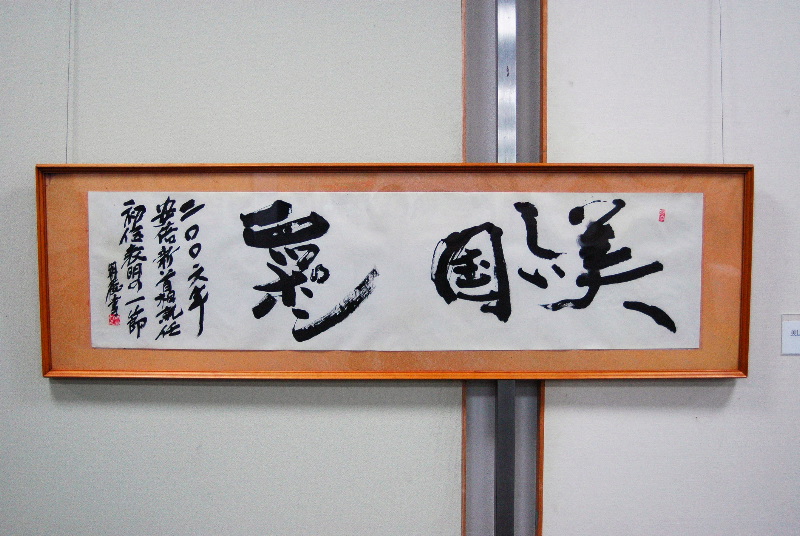 美しい国
二〇〇六年
安倍新首相就任
初信表明の一節